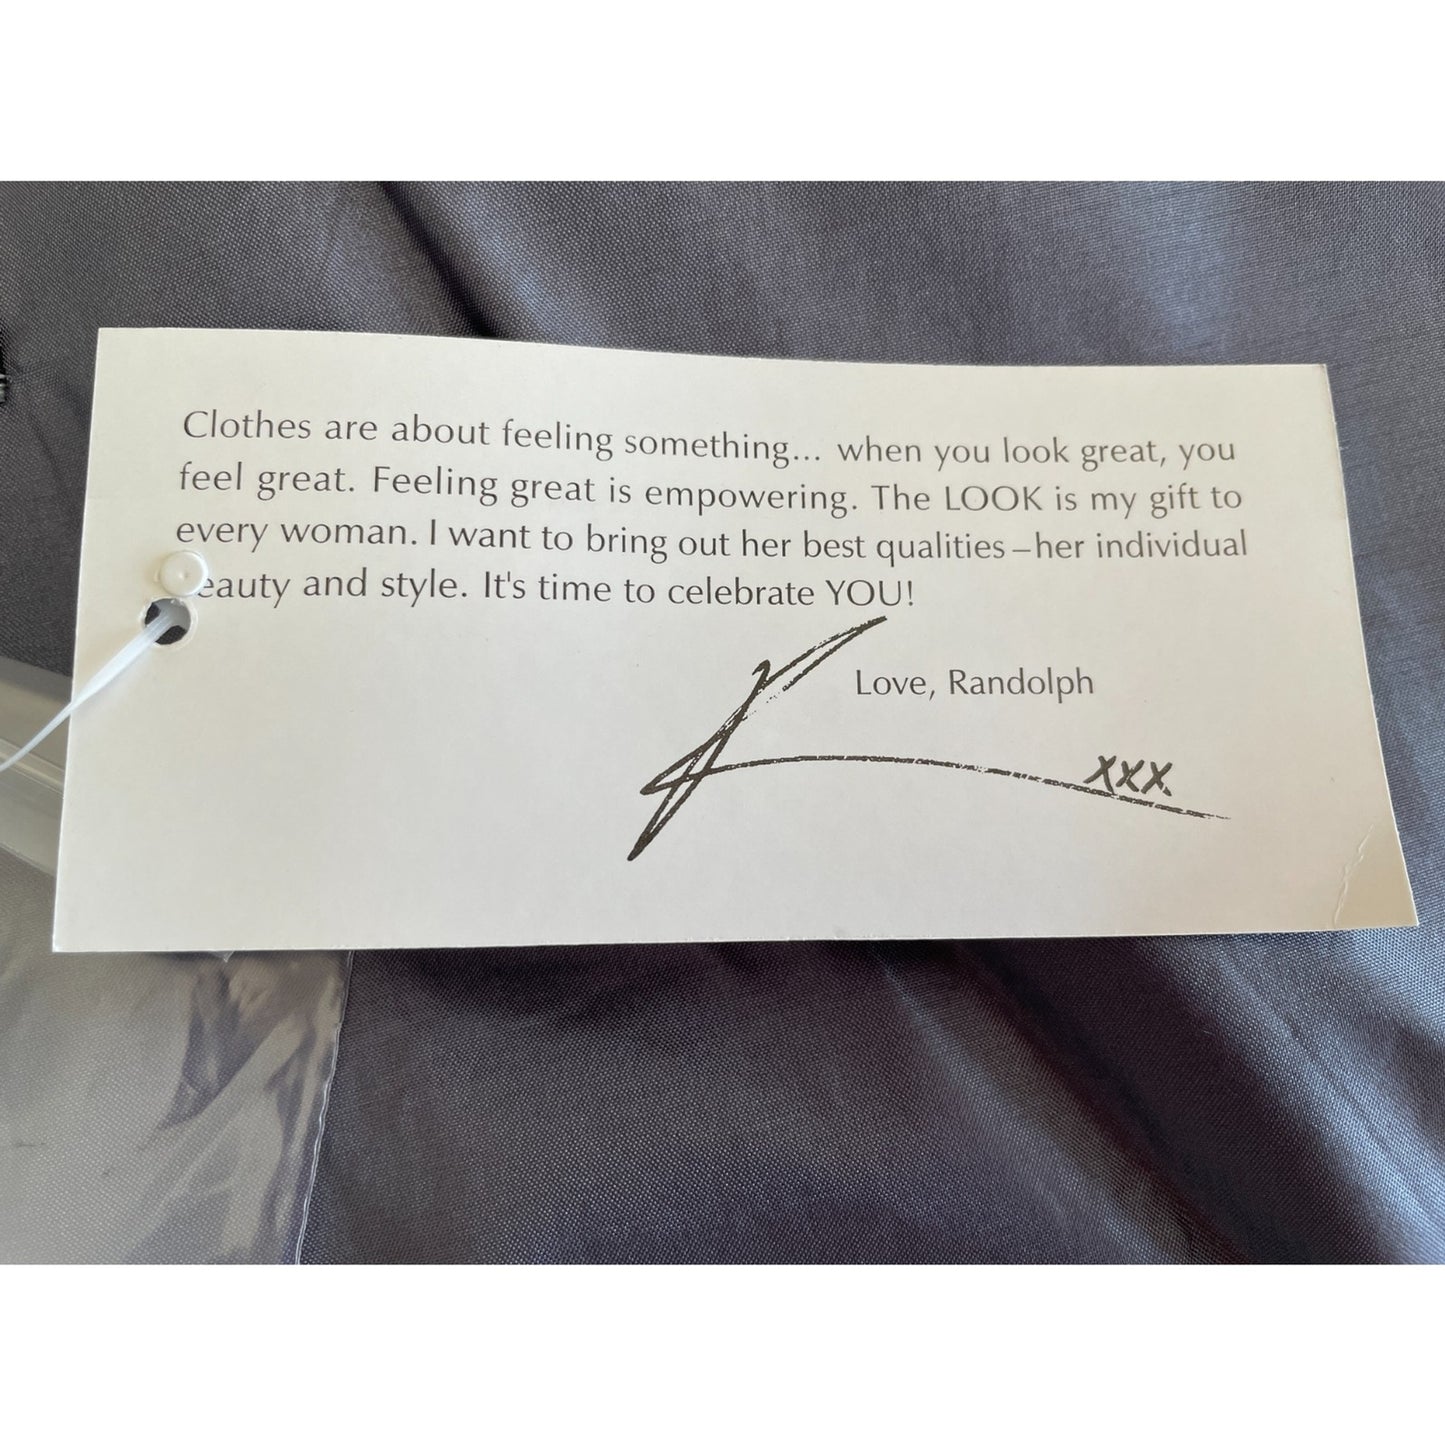 Clothes are about feeling something... when you look great, you
feel great. Feeling great is empowering. The LOOK is my gift to
every woman. I want to bring out her best qualities – her individual
eauty and style. It's time to celebrate YOU!
Love, Randolph
xxx.